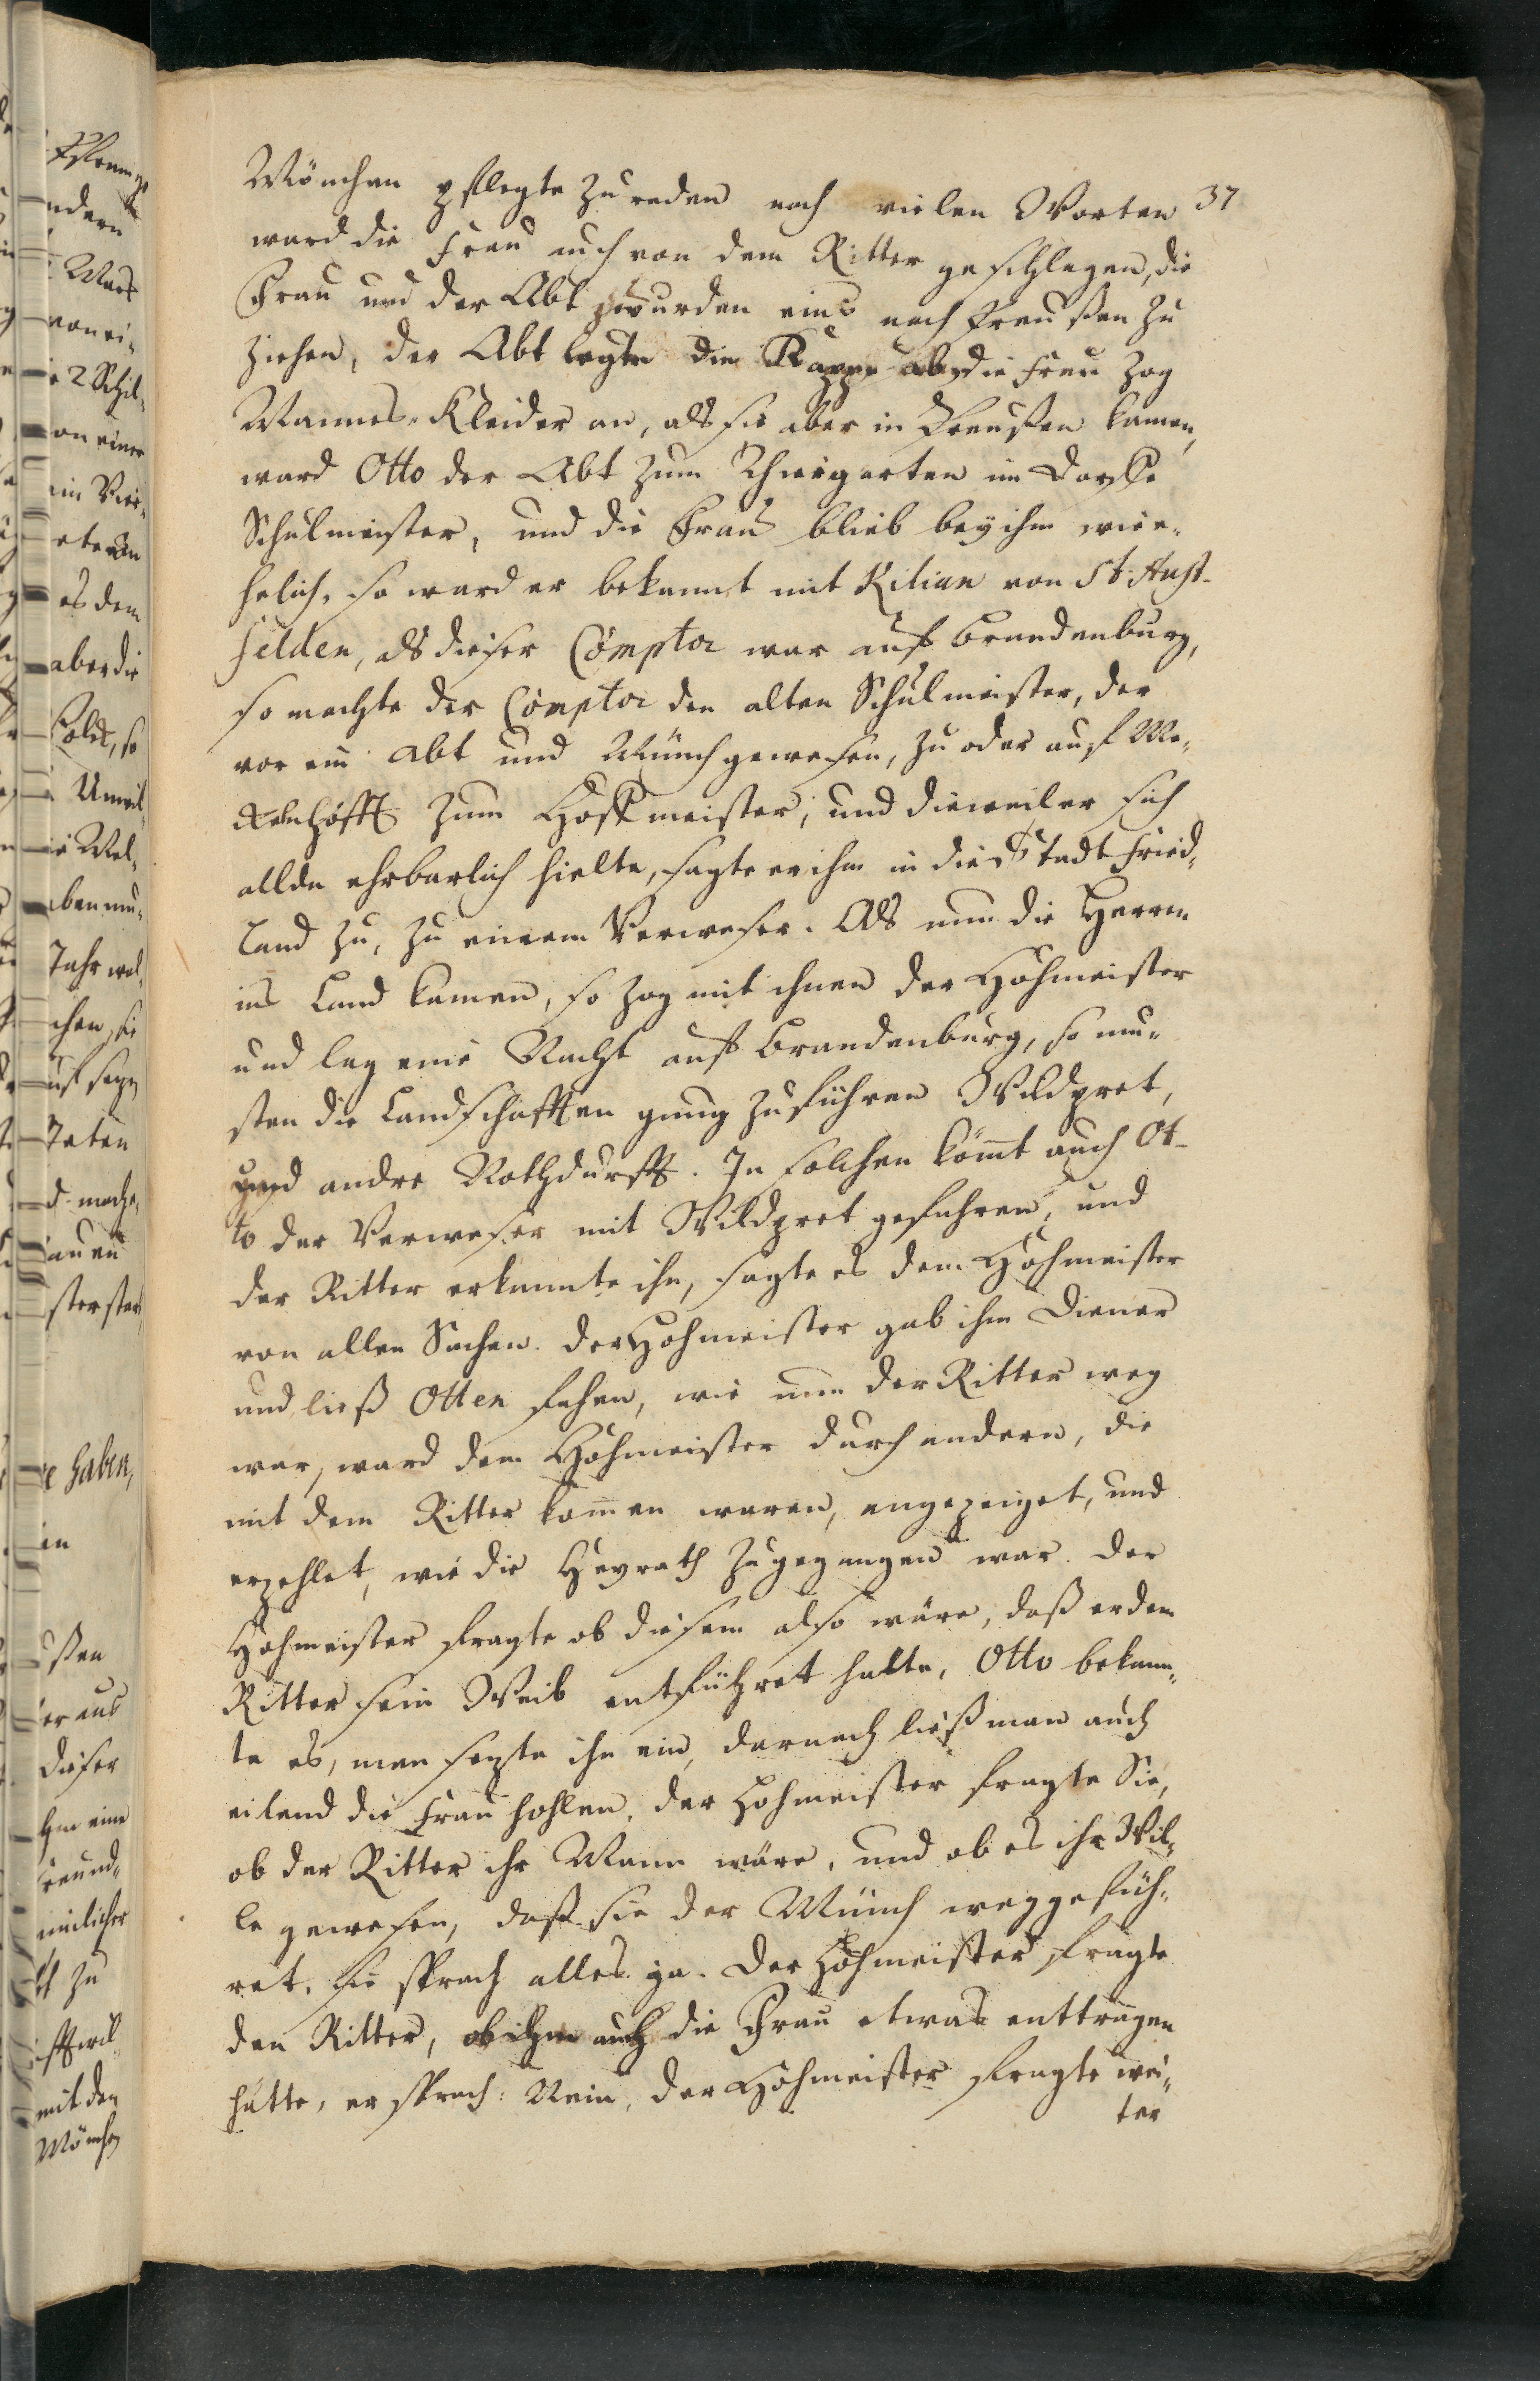 Mönchen pflegte zu reden nach vielen Worten 37
ward die Frau auch von dem Ritter geschlagen, die
Frau und der Abt wurden eins nach Preußen zu
ziehen, der Abt legte die Kappe ab, die Frau zog
Mannes-Kleider an, als sie aber in Preußen kamen,
ward Otto der Abt zum Thiergarten im Dorffe
Schulmeister, und die Frau blieb bey ihm wie e-
helich, so ward er bekannt mit Kilian von
felden, als dieser Comptor war auf Brandenburg,
so machte der Comptor den alten Schulmeister, der
vor ein Abt und Münch gewesen, zu oder auf
zum Hoffmeister, und dieweil er sich
allda ehrbarlich hielte, sagte er ihm in die Stadt Fried-
land zu, zu einem Verweser. Als nun die Herren
ins Land kamen, so zog mit ihnen der Hohmeister
und lag eine Nacht auf Brandenburg, so mu-
sten die Landschafften gnug zuführen Wildpret,
und andre Nothdurfft. In solchen kömt auch Ot-
to der Verweser mit Wildpret gefahren, und
der Ritter erkannte ihn, sagte es dem Hohmeister
von allen Sachen. Der Hohmeister gab ihm Diener
und ließ Otten fahen, wie nun der Ritter weg
war, ward dem Hohmeister durch andern, die
mit dem Ritter kom̄en waren, angezeiget, und
erzehlet, wie die Heyrath zugegangen war. Der
Hohmeister fragte ob diesem also wäre, daß er dem
Ritter sein Weib entführet hatte, Otto bekann-
te es, man sezte ihn ein, darnach ließ man auch
eilend die Frau hohlen, der Hohmeister fragte Sie,
ob der Ritter ihr Mann wäre, und ob es ihr Wil-
le gewesen, daß sie der Münch weggefüh-
ret, sie sprach alles ja. Der Hohmeister fragte
den Ritter, ob ihm auch die Frau etwas enttragen
hätte, er sprach: Nein, der Hohmeister fragte wei-
ter